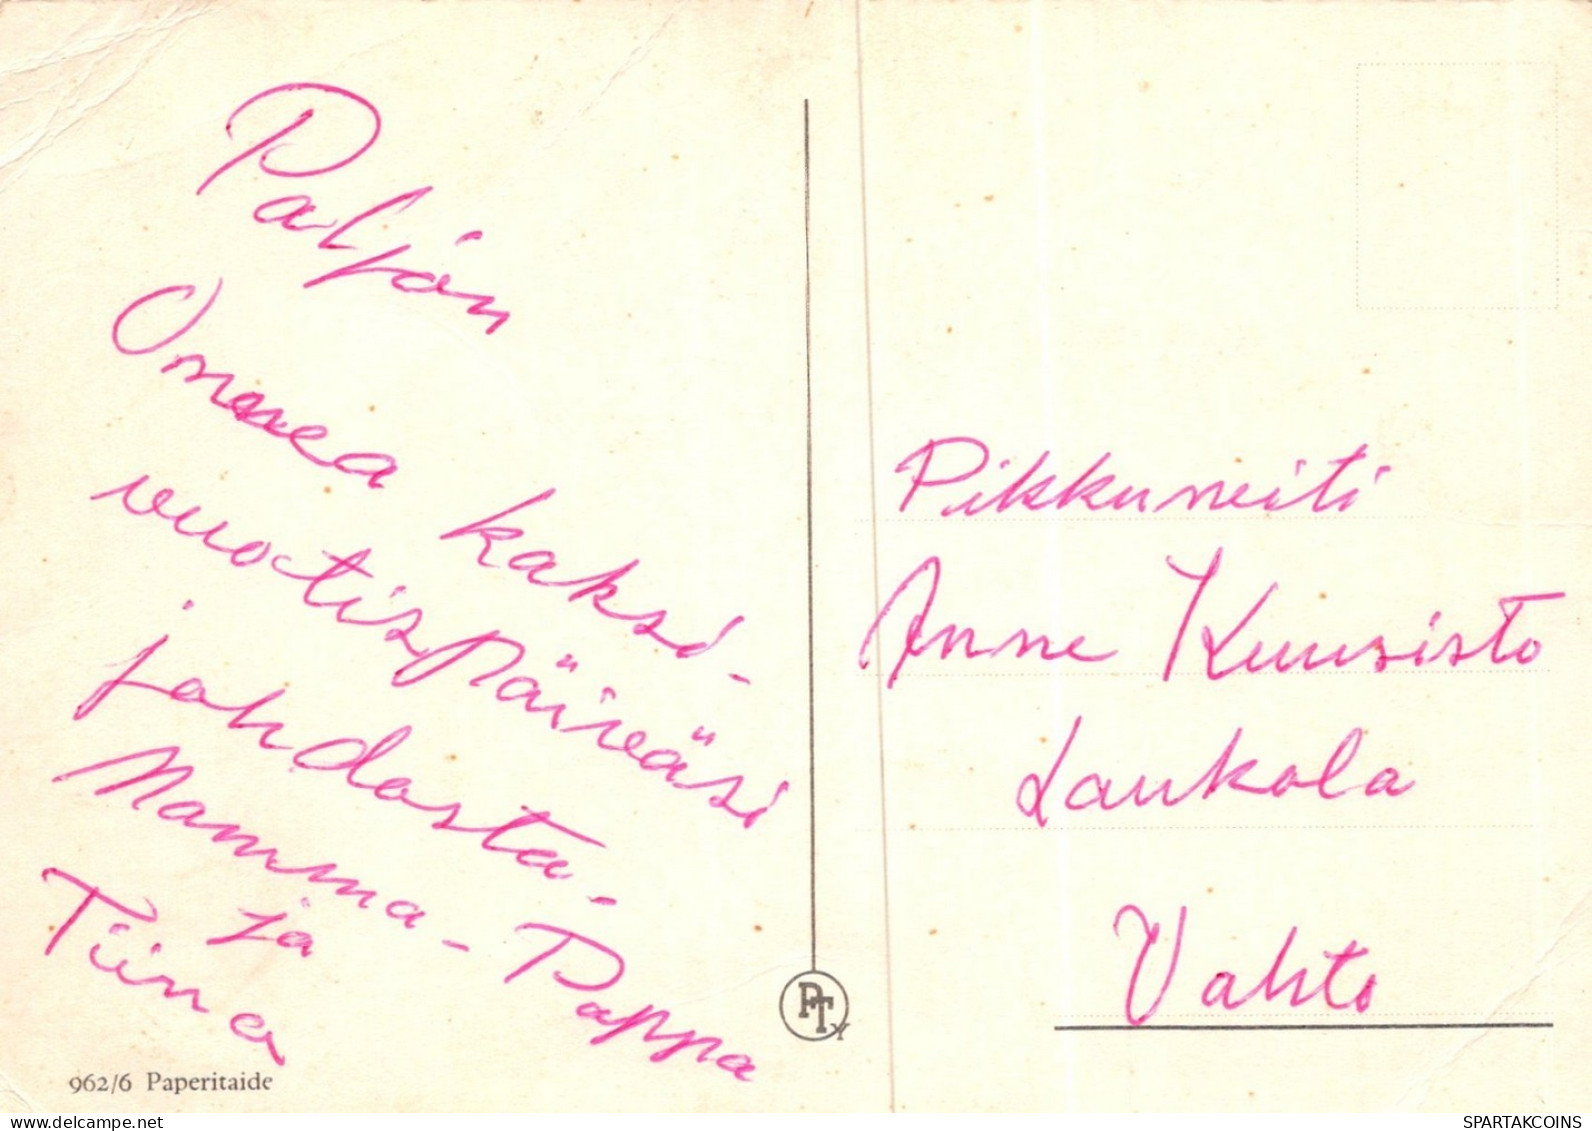 Paljon
Onnea kaksi-
vuotispäiväsi
johdosta.
Mamma - Pappa
ja
Tiina
962/6 Paperitaide
PTY
Pikkuneiti
Anne Kuusisto
Laukola
Vahto
SPARTAKCOINS
WWW.DELCAMPE.NET